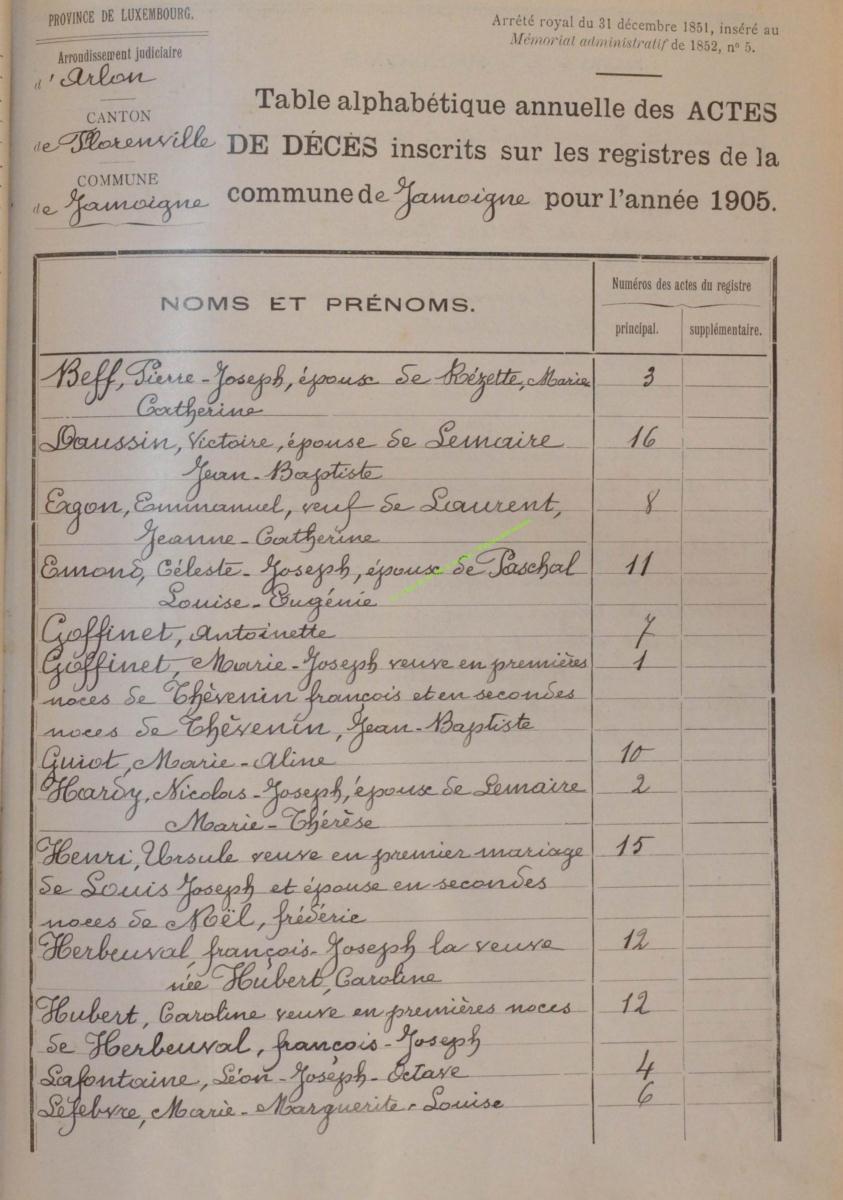 PROVINCE DE LUXEMBOURG.
Arrêté royal du 31 décembre 1851, inséré au
Mémorial administratif de 1852, n° 5.
Arrondissement judiciaire
d'Arlon
CANTON
de Florenville
COMMUNE
de Jamoigne
Table alphabétique annuelle des ACTES
DE DÉCÈS inscrits sur les registres de la
commune de Jamoigne pour l'année 1905.
NOMS ET PRÉNOMS.
Numéros des actes du registre
principal. supplémentaire.
Beff, Pierre-Joseph, époux de Rézette, Marie 3
Catherine
Daussin, Victoire, épouse de Lemaire 16
Jean-Baptiste
Egon, Emmanuel, veuf de Laurent, 8
Jeanne-Catherine
Emond, Céleste-Joseph, époux de Paschal 11
Louise-Eugénie
Goffinet, Antoinette 7
Goffinet, Marie-Joseph veuve en premières 1
noces de Thèvenin françois et en secondes
noces de Thèvenin, Jean-Baptiste
Guiot, Marie-Aline 10
Hardy, Nicolas-Joseph, époux de Lemaire 2
Marie-Thérèse
Henri, Ursule veuve en premier mariage 15
de Louis Joseph et épouse en secondes
noces de Noël, frédéric
Herbeuval, françois-Joseph la veuve 12
née Hubert, Caroline
Hubert, Caroline veuve en premières noces 12
de Herbeuval, françois-Joseph
Lafontaine, Léon-Joseph-Octave 4
Lefebvre, Marie-Marguerite-Louise 6